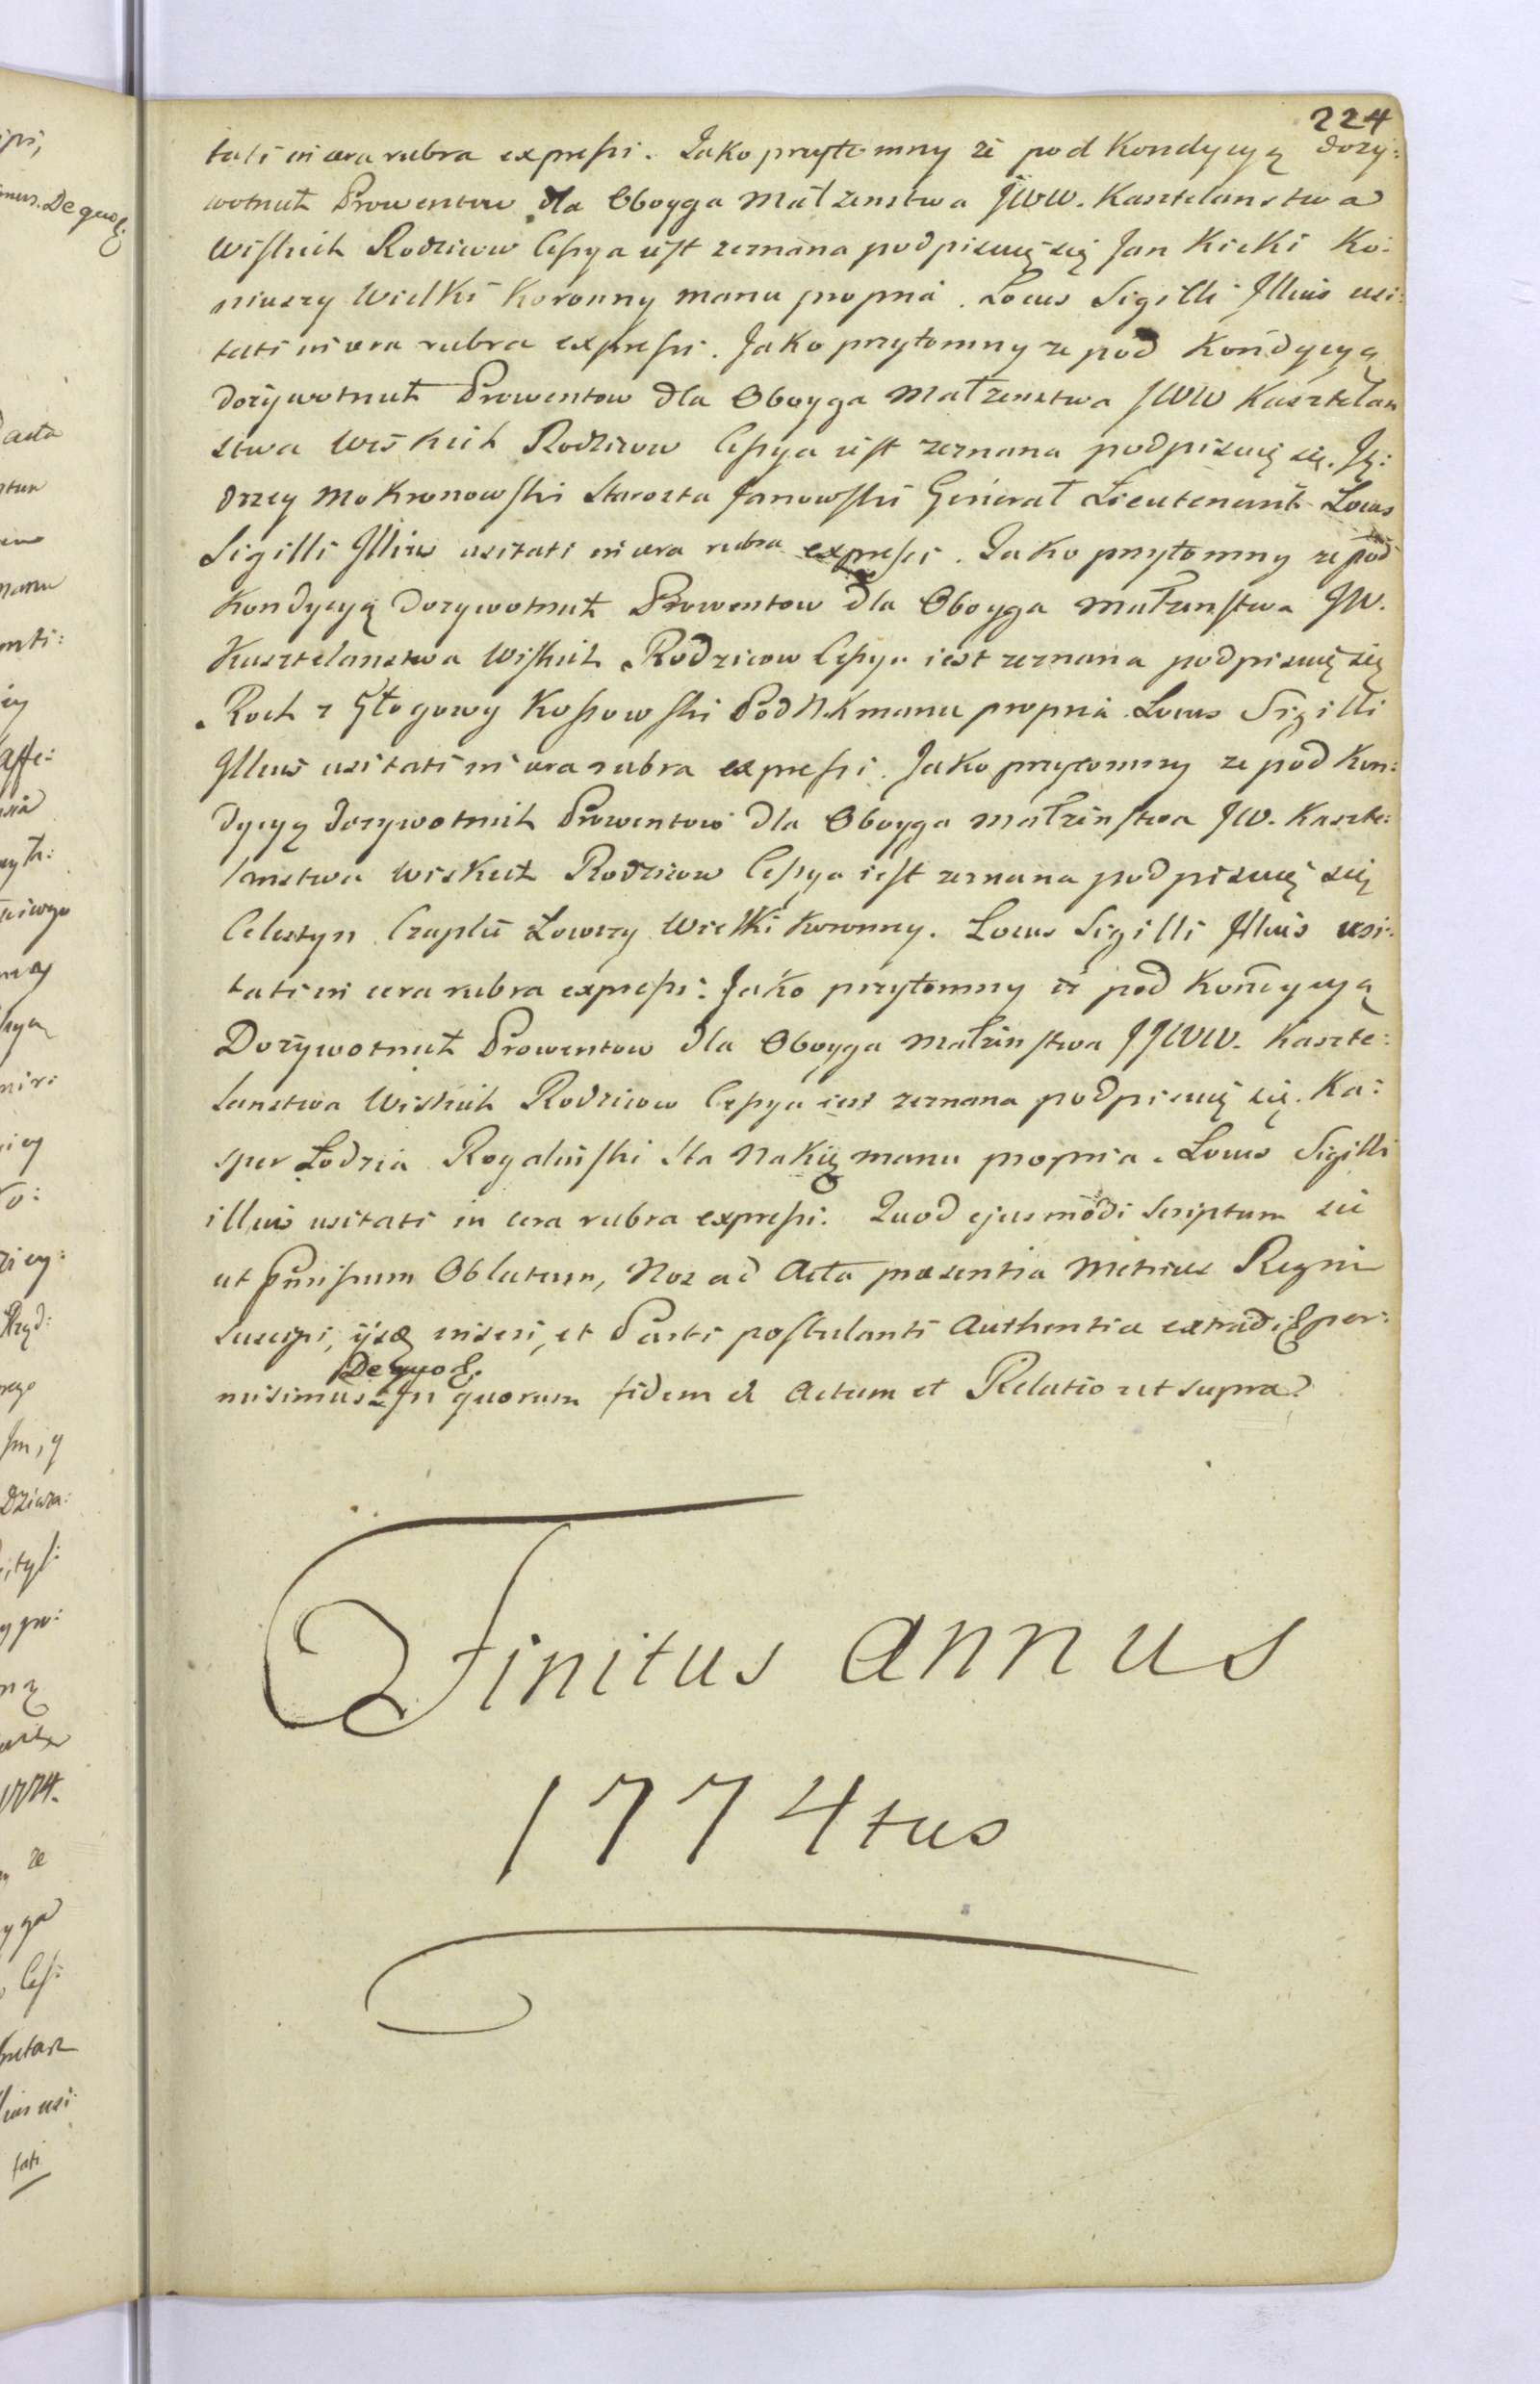 224
tati in cera rubra expressi. Jako przytomny że pod Kondycyą dozy:
wotnich Prowentow dla Oboyga Małżenstwa JWW. Kasztelanstwa
Wiskich Rodzicow Cessya iest zeznana podpisuię się Jan Kicki Ko:
niuszy Wielki Koronny manu propria. Locus Sigilli Illius usi:
tati in cera rubra expressi. Jako przytomny ze pod Kondycyą
dożywotnich Prowentow dla Oboyga Małzenstwa JWW Kasztelan
stwa Wiskich Rodzicow Cessya iest zeznana podpisuię się. Ję:
drzey Mokronowski Starosta Janowski Generał Lieutenant Locus
Sigilli Illius usitati in cera rubra expressi. Jako przytomny ze pod
Kondycyą Dozywotnich Prowentow dla Oboyga Małzenstwa JW.
Kasztelanstwa Wiskich Rodzicow Cessya iest zeznana podpisuię się
Roch z Głogowy Kossowski Pod N. K manu propria Locus Sigilli
Illius usitati in cera rubra expressi. Jako przytomny ze pod Kon:
dycyą dozywotnich Prowentow dla Oboyga Małżenstwa JW. Kaszte:
lanstwa Wiskich Rodzicow Cessya iest zeznana podpisuię się
Celestyn Czaplic Łowczy Wielki Koronny. Locus Sigilli Illius usi:
tati in cera rubra expressi. Jako przytomny iż pod Kondycyą
Dożywotnich Prowentow dla Oboyga Małżenstwa JJWW. Kaszte:
lanstwa Wiskich Rodzicow Cessya iest zeznana podpisuię się. Ka:
sper Łodzia Rogalinski Sta Nakię manu propria. Locus Sigilli
illius usitati in cera rubra expressi. Quod ejusmodi Scriptum sic
ut præmissum Oblatum, Nos ad Acta præsentia Metrices Regni
suscepi, ijsq inseri, et Parti postulanti Authentice extradi per:
De quo
misimus In quorum fidem et Actum et Relatio ut supra
Finitus annus
1774tus